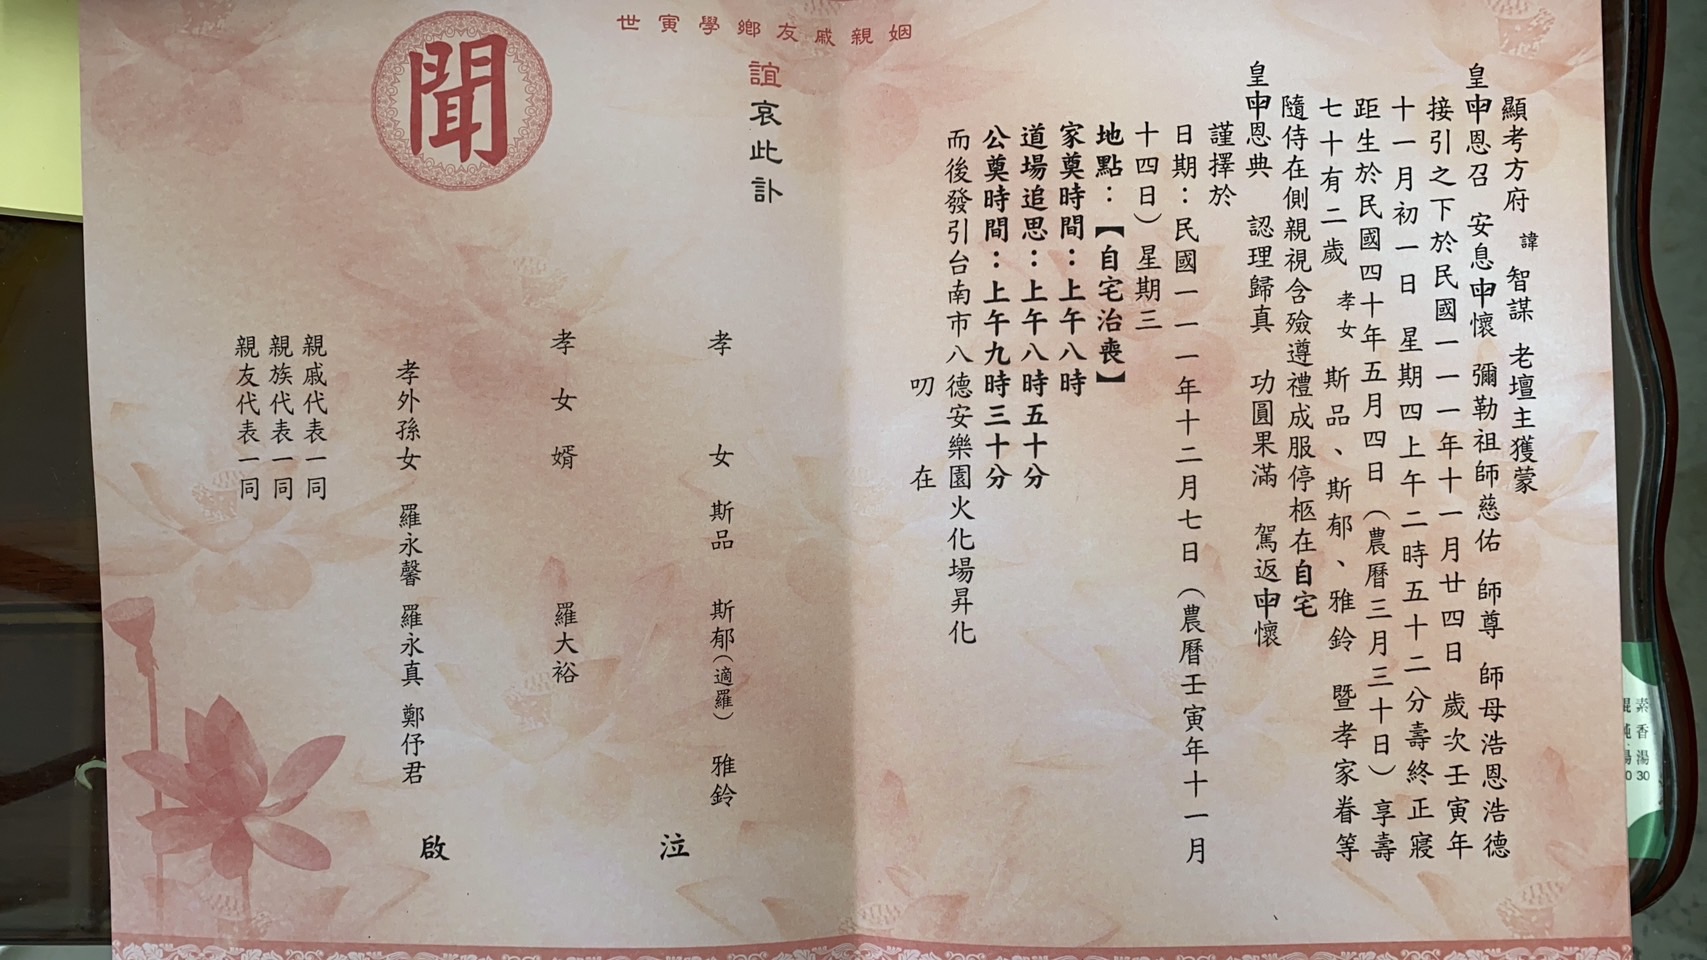 顯考方府 諱 智謀 老壇主獲蒙
皇申恩召 安息申懷 彌勒祖師慈佑 師尊 師母浩恩浩德
接引之下於民國一一一年十一月廿四日 歲次壬寅年
十一月初一日 星期四上午二時五十二分壽終正寢
距生於民國四十年五月四日（農曆三月三十日）享壽
七十有二歲 孝女 斯品、斯郁、雅鈴 暨孝家眷等
隨侍在側親視含殮遵禮成服停柩在自宅
皇申恩典 認理歸真 功圓果滿 駕返申懷
謹擇於
日期：民國一一一年十二月七日（農曆壬寅年十一月
十四日）星期三
地點：【自宅治喪】
家奠時間：上午八時
道場追思：上午八時五十分
公奠時間：上午九時三十分
而後發引台南市八德安樂園火化場昇化
叨 在
姻親戚友鄉學寅世
誼哀此訃
聞
孝女 斯品 斯郁（適羅） 雅鈴
泣
孝女婿 羅大裕
孝外孫女 羅永馨 羅永真 鄭伃君
啟
親戚代表一同
親族代表一同
親友代表一同
素香湯
30